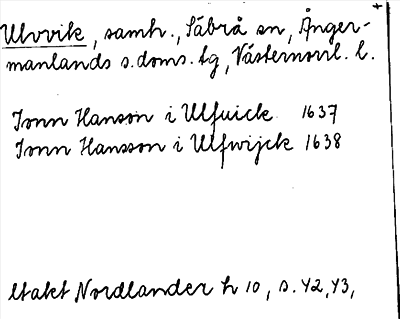 Ulvvik, samh., Säbrå sn, Ånger-
manlands s.doms.lg, Västernorrl. l.
Jonn Hanson i Ulfuick 1637
Jonn Hansson i Ulfwijck 1638
Utakt Nordlander h 10, s. 42, 43,